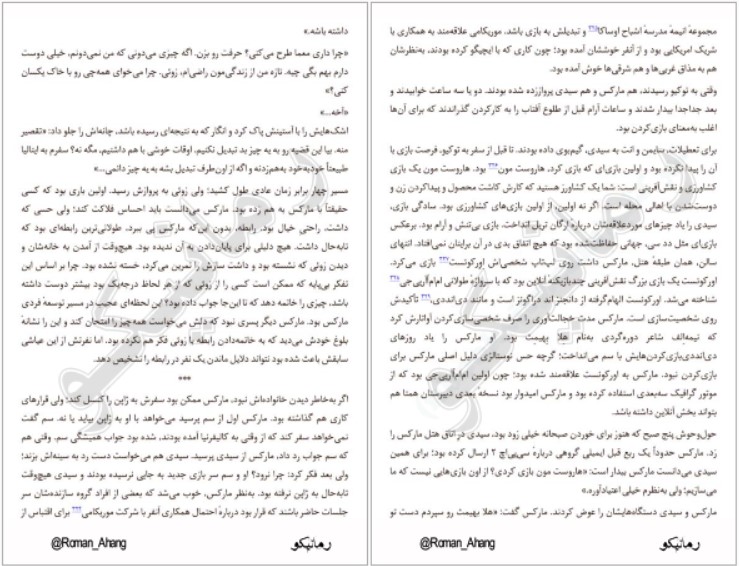 داشته باشه.»
«چرا داری معما طرح می‌کنی؟ حرفت رو بزن. اگه چیزی می‌دونی که من نمی‌دونم، خیلی دوست
دارم بهم بگی چیه. تازه من از زندگی‌مون راضی‌ام، زوئی. چرا می‌خوای همه‌چی رو با خاک یکسان
کنی؟»
«آخه...»
اشک‌هایش را با آستینش پاک کرد و انگار که به نتیجه‌ای رسیده باشد، چانه‌اش را جلو داد: «تقصیر
منه. بیا این قضیه رو به یه چیز بد تبدیل نکنیم. اوقات خوشی با هم داشتیم، مگه نه؟ سفرم به ایتالیا
طبیعتاً خودبه‌خود به‌هم‌زدنه و اگه از اون‌طرف تبدیل بشه به یه چیز دائمی...»
مسیر چهار برابر زمان عادی طول کشید؛ ولی زوئی به پروازش رسید. اولین باری بود که کسی
حقیقتاً با مارکس به هم زده بود. مارکس می‌دانست باید احساس فلاکت کند؛ ولی حسی که
داشت، راحتی خیال بود. رابطه، بدون این‌که مارکس پی ببرد، طولانی‌ترین رابطه‌ای بود که
تابه‌حال داشت. هیچ دلیلی برای پایان‌دادن به آن ندیده بود. هیچ‌وقت از آمدن به خانه‌شان و
دیدن زوئی که نشسته بود و داشت سازش را تمرین می‌کرد، خسته نشده بود. چرا بر اساس این
تفکر بی‌پایه که ممکن است کسی را از زوئی که از هر لحاظ درجه‌یک بود بیشتر دوست داشته
باشد، چیزی را خاتمه دهد که تا این‌جا جواب داده بود؟ این لحظه‌ای عجیب در مسیر توسعهٔ فردی
مارکس بود. مارکس دیگر پسری نبود که دلش می‌خواست همه‌چیز را امتحان کند و این را نشانهٔ
بلوغ خودش می‌دید که به خاتمه‌دادن رابطه با زوئی فکر هم نکرده بود. اما نفرتش از این عیاشی
سابقش باعث شده بود نتواند دلایل ماندن یک نفر در رابطه را تشخیص دهد.
***
اگر به‌خاطر دیدن خانواده‌اش نبود، مارکس ممکن بود سفرش به ژاپن را کنسل کند؛ ولی قرارهای
کاری هم گذاشته بود. مارکس اول از سم پرسید می‌خواهد با او به ژاپن بیاید یا نه. سم گفت
نمی‌خواهد سفر کند که از وقتی به کالیفرنیا آمده بودند، شده بود جواب همیشگی سم. وقتی هم
که سم جواب رد داد، مارکس از سیدی پرسید. سیدی هم می‌خواست دست رد به سینه‌اش بزند؛
ولی بعد فکر کرد: چرا نرود؟ او و سم سر بازی جدید به جایی نرسیده بودند و سیدی هیچ‌وقت
تابه‌حال به ژاپن نرفته بود. به‌نظر مارکس، خوب می‌شد که بعضی از افراد گروه سازنده‌شان سر
جلسات حاضر باشند که قرار بود دربارهٔ احتمال همکاری آنفر با شرکت موریکامی برای اقتباس از
رمانیکو
@Roman_Ahang
مجموعهٔ انیمهٔ مدرسهٔ اشباح اوساکا و تبدیلش به بازی باشد. موریکامی علاقه‌مند به همکاری با
شریک امریکایی بود و از آنفر خوششان آمده بود؛ چون کاری که با ایچیگو کرده بودند، به‌نظرشان
هم به مذاق غربی‌ها و هم شرقی‌ها خوش آمده بود.
وقتی به توکیو رسیدند، هم مارکس و هم سیدی پرواززده شده بودند. دو یا سه ساعت خوابیدند و
بعد جداجدا بیدار شدند و ساعات آرام قبل از طلوع آفتاب را به کارکردن گذراندند که برای آن‌ها
اغلب به‌معنای بازی‌کردن بود.
برای تعطیلات، سایمن و انت به سیدی، گیم‌بوی داده بودند. تا قبل از سفر به توکیو، فرصت بازی با
آن را پیدا نکرده بود و اولین بازی‌ای که بازی کرد، هاروست مون بود. هاروست مون یک بازی
کشاورزی و نقش‌آفرینی است: شما یک کشاورز هستید که کارش کاشت محصول و پیداکردن زن و
دوست‌شدن با اهالی محله است. اگر نه اولین، از اولین بازی‌های کشاورزی بود. سادگی بازی،
سیدی را یاد چیزهای موردعلاقه‌شان دربارهٔ ارگان تریل انداخت. بازی بی‌تنش و آرام بود. برعکس
بازی‌ای مثل دد سی، جهانی حفاظت‌شده بود که هیچ اتفاق بدی در آن برایتان نمی‌افتاد. انتهای
سالن، همان طبقهٔ هتل، مارکس داشت روی لپ‌تاپ شخصی‌اش اورکوئست۳۴۷ بازی می‌کرد.
اورکوئست یک بازی بزرگ نقش‌آفرینی چندبازیکنهٔ آنلاین بود که با سرواژهٔ طولانی ام‌ام‌اوآرپی‌جی
شناخته می‌شد. اورکوئست الهام‌گرفته از دانجنز اند دراگونز است و مانند دی‌انددی، تأکیدش
روی شخصیت‌سازی است. مارکس مدت خجالت‌آوری را صرف شخصی‌سازی‌کردن آواتارش کرد
که نیمه‌الف شاعر دوره‌گردی به‌نام هلا بهیمت بود. او مارکس را یاد روزهای
دی‌انددی‌بازی‌کردن‌هایش با سم می‌انداخت؛ گرچه حس نوستالژی دلیل اصلی مارکس برای
بازی‌کردن نبود. مارکس به اورکوئست علاقه‌مند شده بود؛ چون اولین ام‌ام‌اوآرپی‌جی بود که از
موتور گرافیک سه‌بعدی استفاده کرده بود و مارکس امیدوار بود نسخه بعدی دبیرستان همتا هم
بتواند بخش آنلاین داشته باشد.
حول‌وحوش پنج صبح که هنوز برای خوردن صبحانه خیلی زود بود، سیدی در اتاق هتل مارکس را
زد. مارکس حدوداً یک ربع قبل ایمیلی گروهی دربارهٔ سی‌پی‌اچ ۲ ارسال کرده بود؛ برای همین
سیدی می‌دانست مارکس بیدار است: «هاروست مون بازی کردی؟ از اون بازی‌هایی نیست که ما
می‌سازیم؛ ولی به‌نظرم خیلی اعتیادآوره.»
مارکس و سیدی دستگاه‌هایشان را عوض کردند. مارکس گفت: «هلا بهیمت رو سپردم دست تو
رمانیکو
@Roman_Ahang